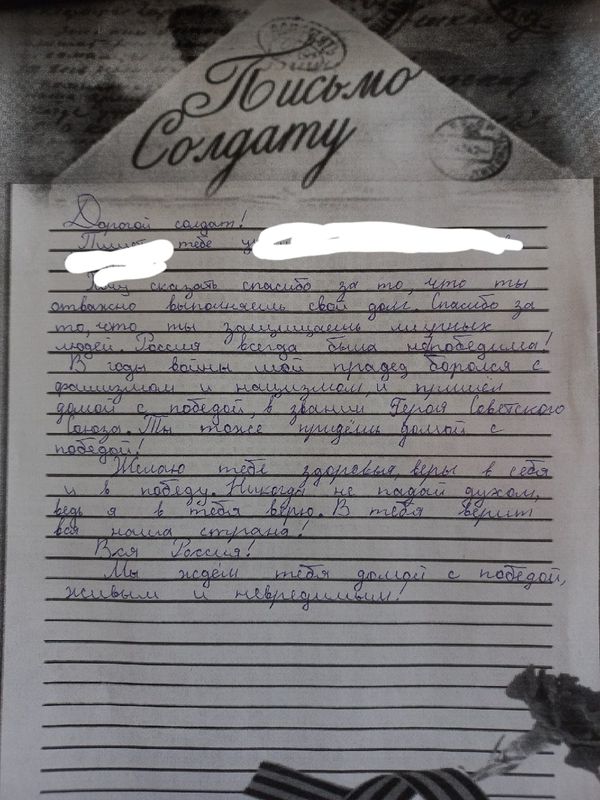 Письмо
Солдату
Дорогой солдат!
Пишет тебе
Хочу сказать спасибо за то, что ты
отважно выполняешь свой долг. Спасибо за
то, что ты защищаешь мирных
людей. Россия всегда была непобедима!
В годы войны мой прадед боролся с
фашизмом и нацизмом, и пришёл
домой с победой, в звании Героя Советского
Союза. Ты тоже придёшь домой с
победой!
Желаю тебе здоровья, веры в себя
и в победу. Никогда не падай духом,
ведь я в тебя верю. В тебя верит
вся наша страна!
Вся Россия!
Мы ждём тебя домой с победой,
живым и невредимым!